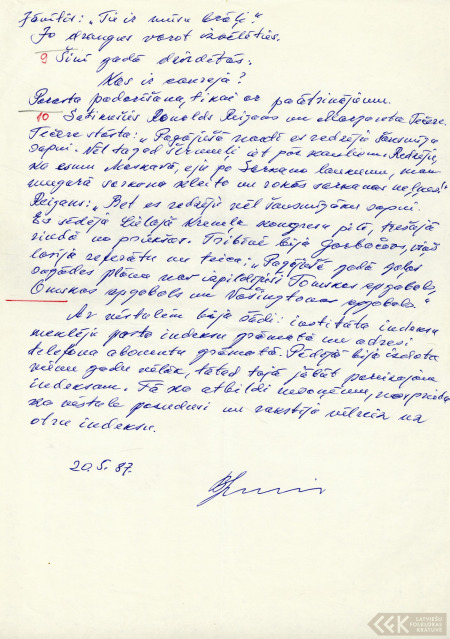 Zīmītes: „Tie ir mūsu brāļi!"
Jo draugus varot izvēlēties.
9 Šinī gadā dzirdētās.
Kas ir conseja?
Parasta padarīšana, tikai ar paātrinājumu.
10 Satikušies Ronalds Reigans un Margareta Tečere.
Tečere stāsta: „Pagājušā naktī es redzēju šausmīgu
sapni. Vēl tagad šermuļi iet pār kauliem. Redzēju,
ka esmu Maskavā, eju pa Sarkano laukumu, man
mugurā sarkana kleita un rokās sarkanas neļķes!"
Reigans: „Bet es redzēju vēl šausmīgāku sapni.
Es sēdēju Lielajā Kremļa kongresu pilī, trešajā
rindā no priekšas. Tribīnē bija Gorbačovs, viņš
lasīja referātu un teica: „Pagājušā gadā gaļas
sagādes plānu nav izpildījuši Tomskas apgabals,
Omskas apgabals un Vašingtonas apgabals."
Ar vēstulēm bija šādi: institūta indeksu
meklēju pasta indeksu grāmatā un adresi
telefona abonentu grāmatā. Pēdējā bija izdota
gadu vēlāk, tātad tajā jābūt pareizajam
indeksam. Tā kā atbildi nesaņēmu,
ka vēstule pazudusi un rakstīju vēlreiz na
otru indeksu.
20.5.87.
LATVIEŠU
FOLKLORAS
KRĀTUVE